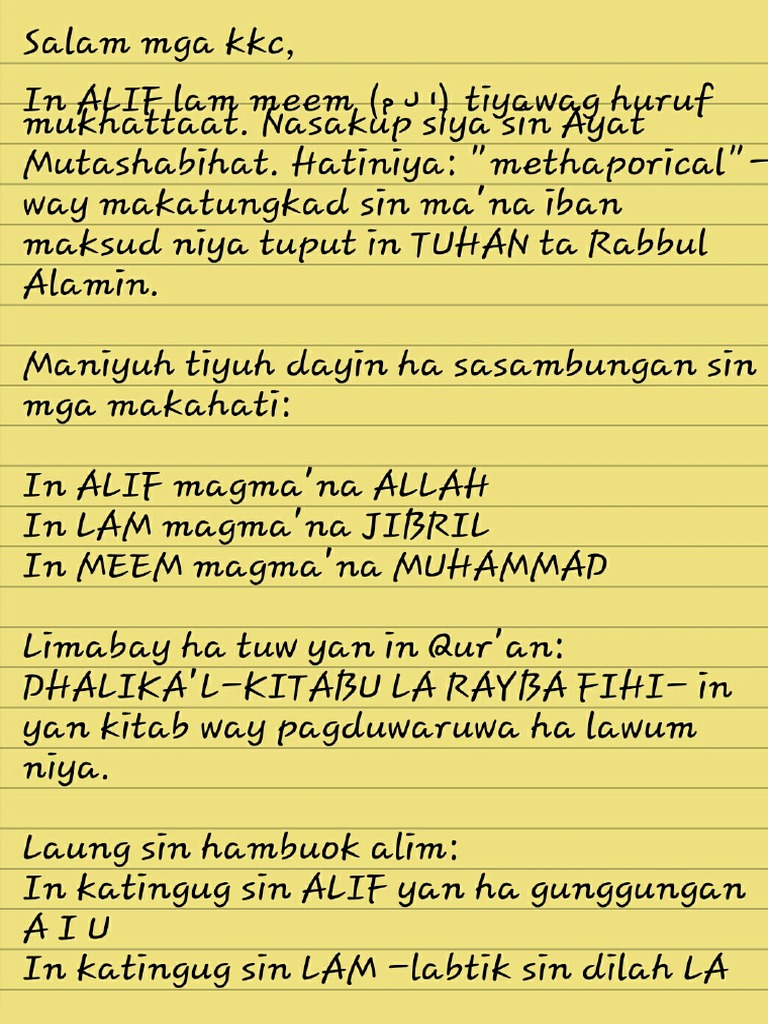 Salam mga kkc,
In ALIF lam meem (ا ل م) tiyawag huruf
mukhattaat. Nasakup siya sin Ayat
Mutashabihat. Hatiniya: "methaporical"–
way makatungkad sin ma'na iban
maksud niya tuput in TUHAN ta Rabbul
Alamin.
Maniyuh tiyuh dayin ha sasambungan sin
mga makahati:
In ALIF magma'na ALLAH
In LAM magma'na JIBRIL
In MEEM magma'na MUHAMMAD
Limabay ha tuw yan in Qur'an:
DHALIKA'L–KITABU LA RAYBA FIHI– in
yan kitab way pagduwaruwa ha lawum
niya.
Laung sin hambuok alim:
In katingug sin ALIF yan ha gunggungan
A I U
In katingug sin LAM –labtik sin dilah LA